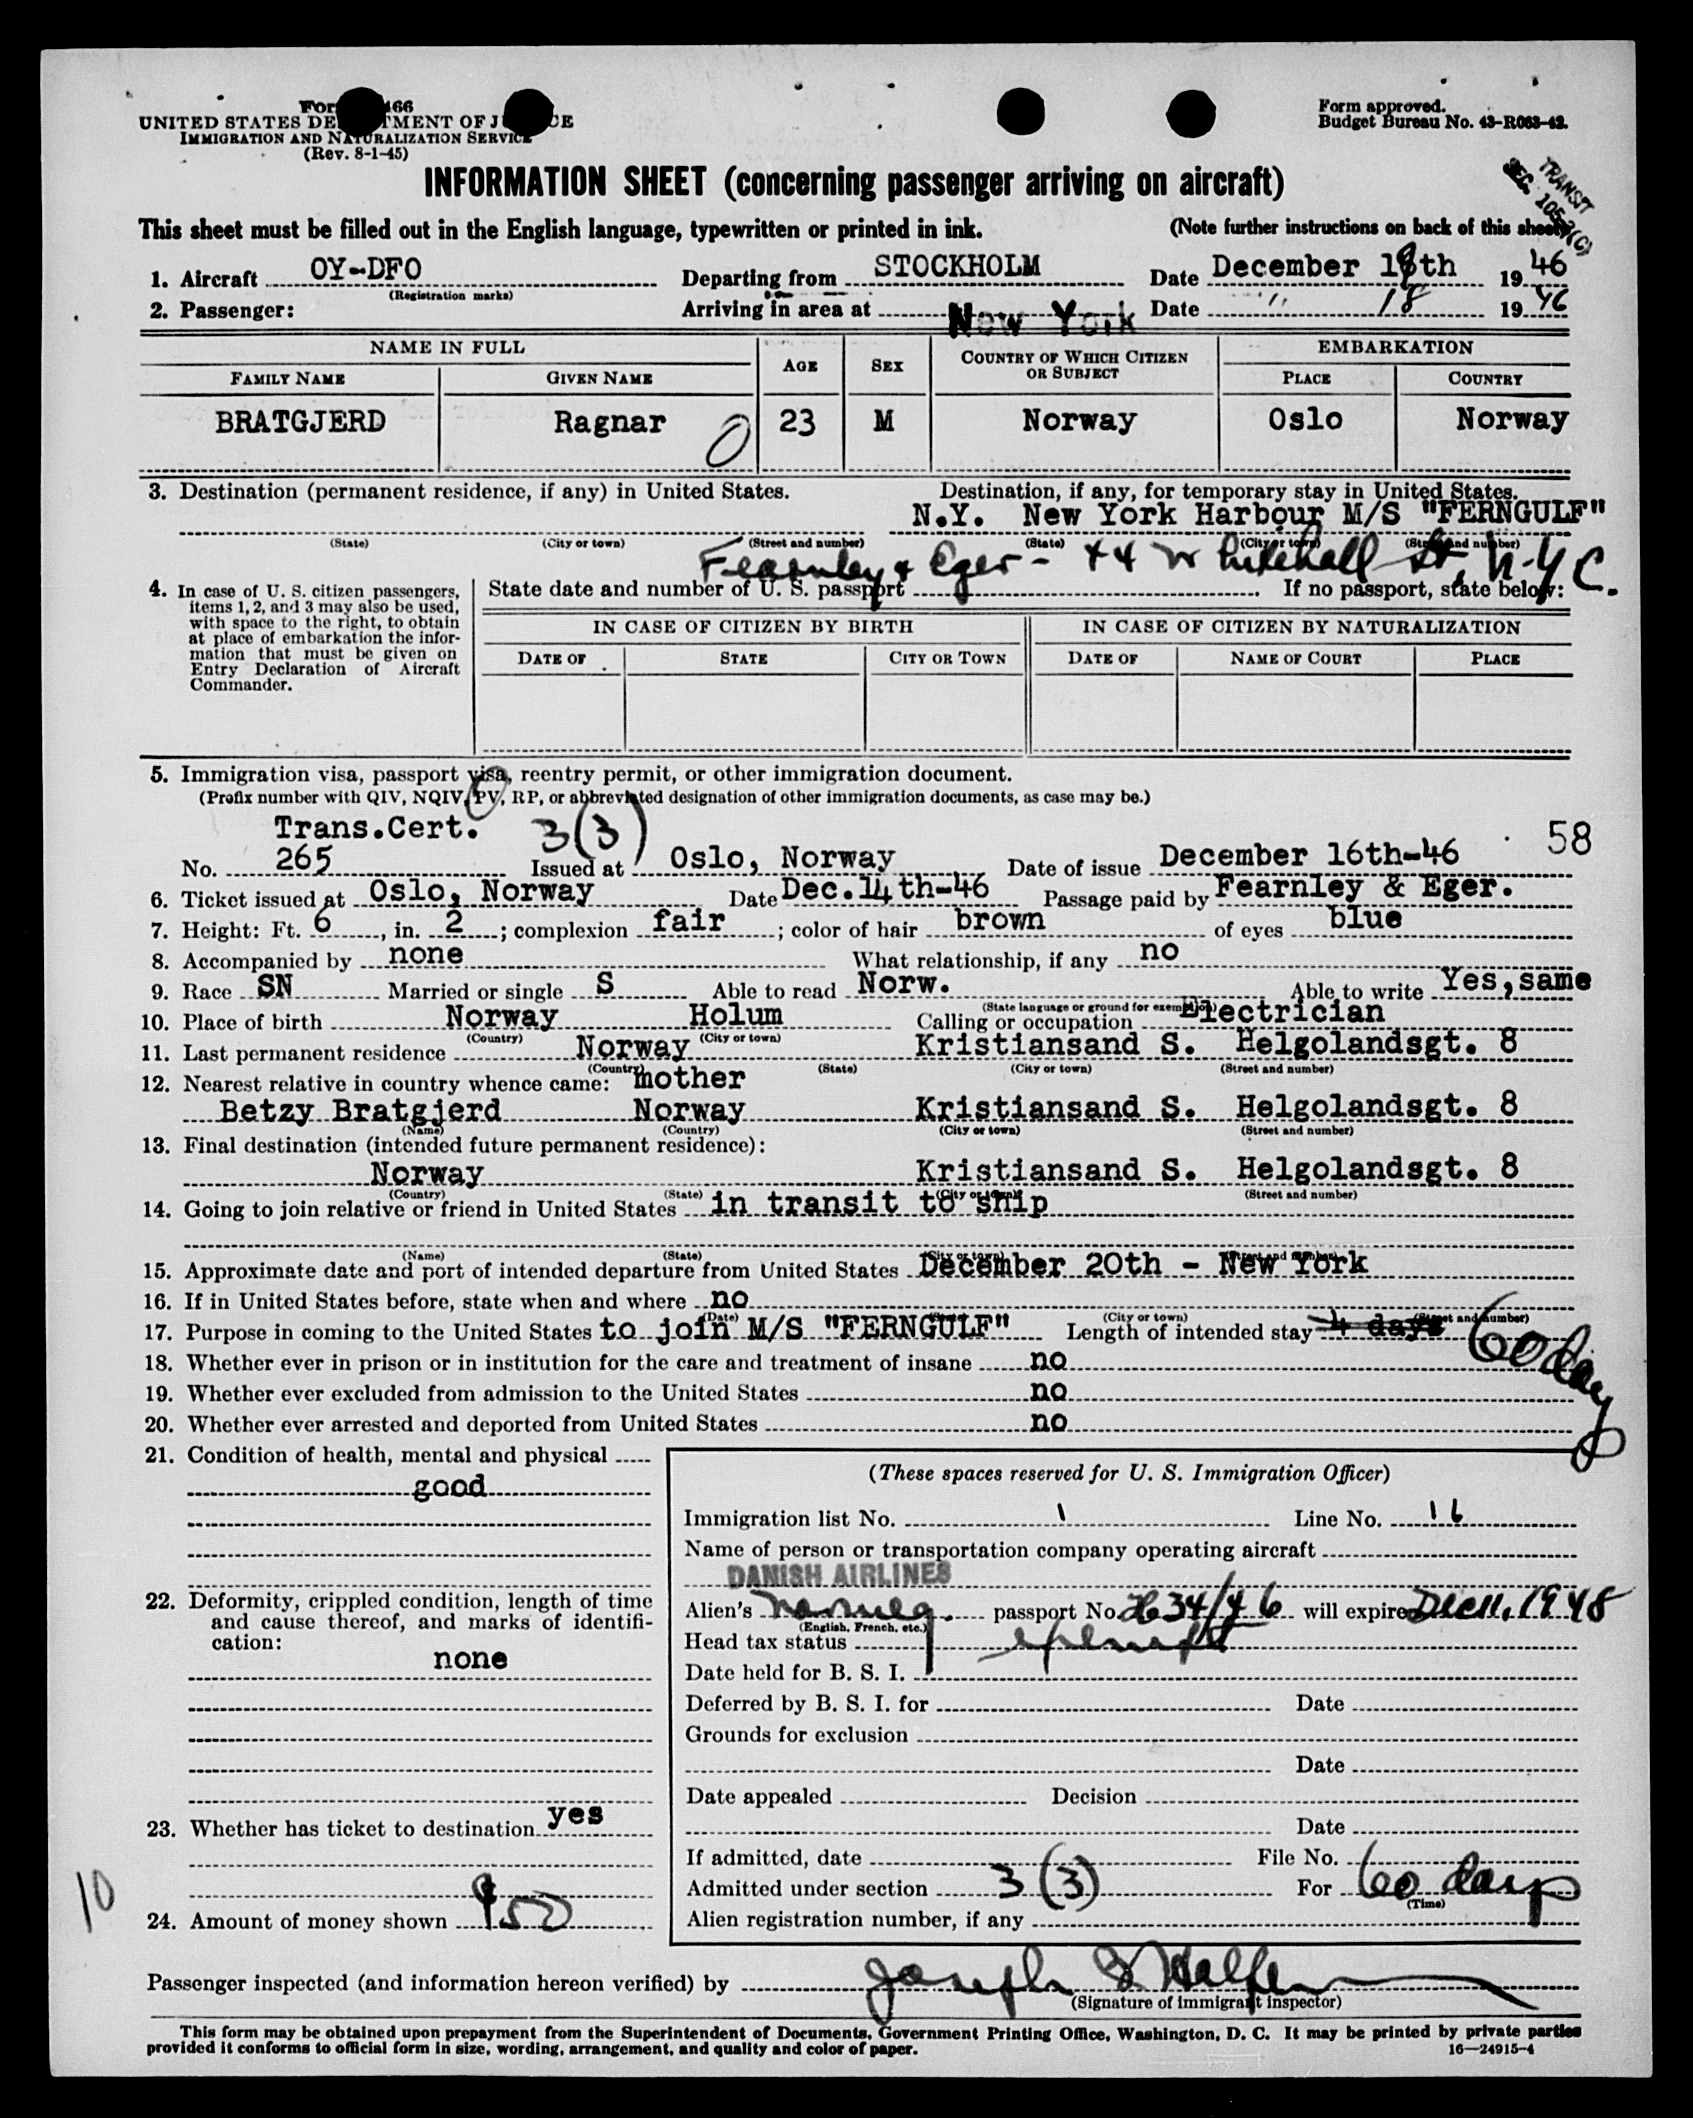 UNITED STATES DE MENT OF J CE
IMMIGRATION AND NATURALIZATION SERVICE
(Rev. 8-1-45)
Form approved.
Budget Bureau No. 43-R063-42.
TRANSIT
SEC.
INFORMATION SHEET (concerning passenger arriving on aircraft)
This sheet must be filled out in the English language, typewritten or printed in ink.
(Note further instructions on back of this sheet)
1. Aircraft OY-DFO Departing from STOCKHOLM Date December 18th 1946
(Registration marks)
2. Passenger: Arriving in area at New York Date " 18 1946
NAME IN FULL AGE SEX COUNTRY OF WHICH CITIZEN OR SUBJECT EMBARKATION
FAMILY NAME GIVEN NAME PLACE COUNTRY
BRATGJERD Ragnar 0 23 M Norway Oslo Norway
3. Destination (permanent residence, if any) in United States. Destination, if any, for temporary stay in United States.
N.Y. New York Harbour M/S "FERNGULF"
(State) (City or town) (Street and number) (State) (City or town) (Street and number)
Fearnley & Eger - 44 Whitehall St, N.Y.C.
4. In case of U. S. citizen passengers, items 1, 2, and 3 may also be used, with space to the right, to obtain at place of embarkation the information that must be given on Entry Declaration of Aircraft Commander.
State date and number of U. S. passport If no passport, state below:
IN CASE OF CITIZEN BY BIRTH IN CASE OF CITIZEN BY NATURALIZATION
DATE OF STATE CITY OR TOWN DATE OF NAME OF COURT PLACE
5. Immigration visa, passport visa, reentry permit, or other immigration document.
(Prefix number with QIV, NQIV, PV, RP, or abbreviated designation of other immigration documents, as case may be.)
Trans.Cert. 3(3) 58
No. 265 Issued at Oslo, Norway Date of issue December 16th-46
6. Ticket issued at Oslo, Norway Date Dec.14th-46 Passage paid by Fearnley & Eger.
7. Height: Ft. 6, in. 2; complexion fair; color of hair brown of eyes blue
8. Accompanied by none What relationship, if any no
9. Race SN Married or single S Able to read Norw. Able to write Yes, same
(State language or ground for exemption)
10. Place of birth Norway Holum Calling or occupation Electrician
(Country) (City or town)
11. Last permanent residence Norway Kristiansand S. Helgolandsgt. 8
(Country) (State) (City or town) (Street and number)
12. Nearest relative in country whence came: mother
Betzy Bratgjerd Norway Kristiansand S. Helgolandsgt. 8
(Name) (Country) (City or town) (Street and number)
13. Final destination (intended future permanent residence):
Norway Kristiansand S. Helgolandsgt. 8
(Country) (State) (City or town) (Street and number)
14. Going to join relative or friend in United States in transit to ship
(Name) (State) (City or town) (Street and number)
15. Approximate date and port of intended departure from United States December 20th - New York
16. If in United States before, state when and where no
(Date) (City or town) (Street and number)
17. Purpose in coming to the United States to join M/S "FERNGULF" Length of intended stay 4 days 60 days
18. Whether ever in prison or in institution for the care and treatment of insane no
19. Whether ever excluded from admission to the United States no
20. Whether ever arrested and deported from United States no
21. Condition of health, mental and physical
good
22. Deformity, crippled condition, length of time and cause thereof, and marks of identification:
none
23. Whether has ticket to destination yes
10
24. Amount of money shown $50
(These spaces reserved for U. S. Immigration Officer)
Immigration list No. 1 Line No. 16
Name of person or transportation company operating aircraft
DANISH AIRLINES
Alien's passport No. 2634/46 will expire Dec 11, 1948
(English, French, etc.)
Head tax status exempt
Date held for B. S. I.
Deferred by B. S. I. for Date
Grounds for exclusion
Date
Date appealed Decision
Date
If admitted, date File No.
Admitted under section 3(3) For 60 days
(Time)
Alien registration number, if any
Passenger inspected (and information hereon verified) by Joseph
(Signature of immigrant inspector)
This form may be obtained upon prepayment from the Superintendent of Documents, Government Printing Office, Washington, D. C. It may be printed by private parties
provided it conforms to official form in size, wording, arrangement, and quality and color of paper.
16—24915-4